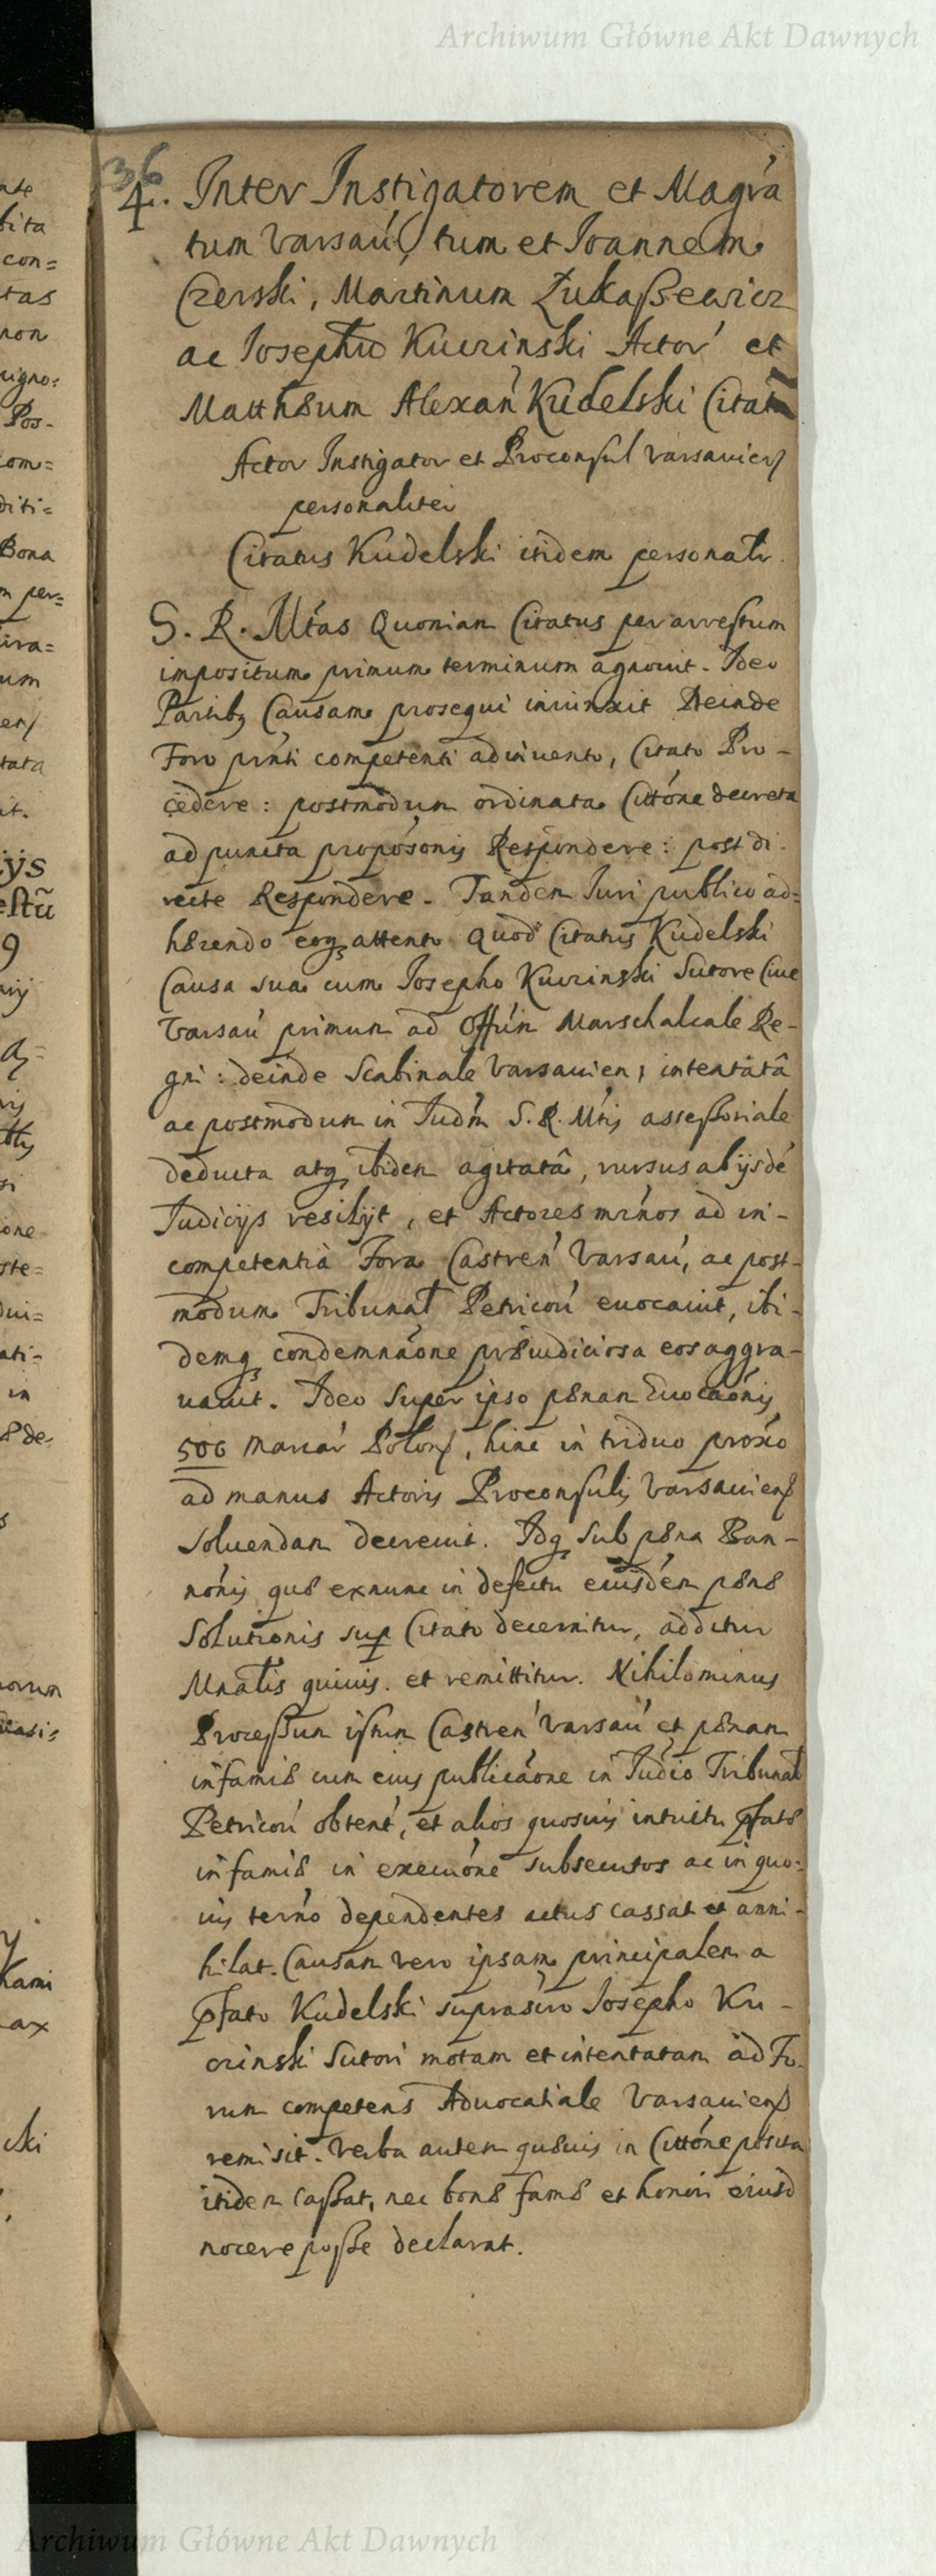 Archiwum Główne Akt Dawnych
36
4. Inter Instigatorem et Magra
tum Varsav́, tum et Joannem
Czerski, Martinum Łukaßewicz
ac Josephu Kucrinski Actoŕ et
Matthæum Alexań Kudelski Citat
Actor Instigator et Proconsul Varsavien
personaliter
Citatus Kudelski itidem personalr.
S. R. Mtas Quoniam Citatus per arrestum
impositum primum terminum agnovit. Ideo
Partibq Causam prosequi iniunxit Deinde
Foro pnti competenti adinvento, Citato Pro-
cedere: postmodum ordinata Cittóne decreta
ad puncta propósonis Respondere: post di
recte Respondere. Tandem Juri publico ad=
hærendo eoq attento quod Citatus Kudelski
Causa sua cum Josepho Kucrinski Sutore Cive
Varsav́ primum ad Offin Marschalcale Re-
gni: deinde Scabinale Varsavien; intentatâ
ac postmodum in Judm S. R. Mtis assessoriale
deducta atq ibidem agitatâ, rursus ab ijsdé
Judicijs resilijt, et Actores minos ad in-
competentia Fora Castreń Varsav́, ac post-
modum Tribunal Petricoń evocavit, ibi-
demq condemnáone præiudiciosa eos aggra-
vavit. Ideo super ipso pænam Evocaónis
500 Marcar Polon, hinc in triduo proxio
ad manus Actoris Proconsulis Varsaviens
solvendam decrevit. Idq sub pæna Ban-
nónis quæ exnunc in defectu eiusdem pænæ
Solutionis sup Citato decernitur, additur
Mnalis quivis. et remittitur. Nihilominus
Processum istum Castreń Varsav́ et pænam
infamiæ cum eius publicáone in Judio Tribunal
Petricoń obtent́, et alios quosvis intuitu pfatæ
infamiæ in execuóne subsecutos ac in quo=
vis terno dependentes actus cassat et anni-
hilat. Causam vero ipsam principalem a
pfato Kudelski suprascro Josepho Ku-
crinski Sutori motam et intentatam ad Fo-
rum competens Advocatiale Varsaviens
remisit. Verba autem quævis in Cittóne posita
itidem cassat, nec bonæ famæ et honori eiusd
nocere posse declarat.
Archiwum Główne Akt Dawnych